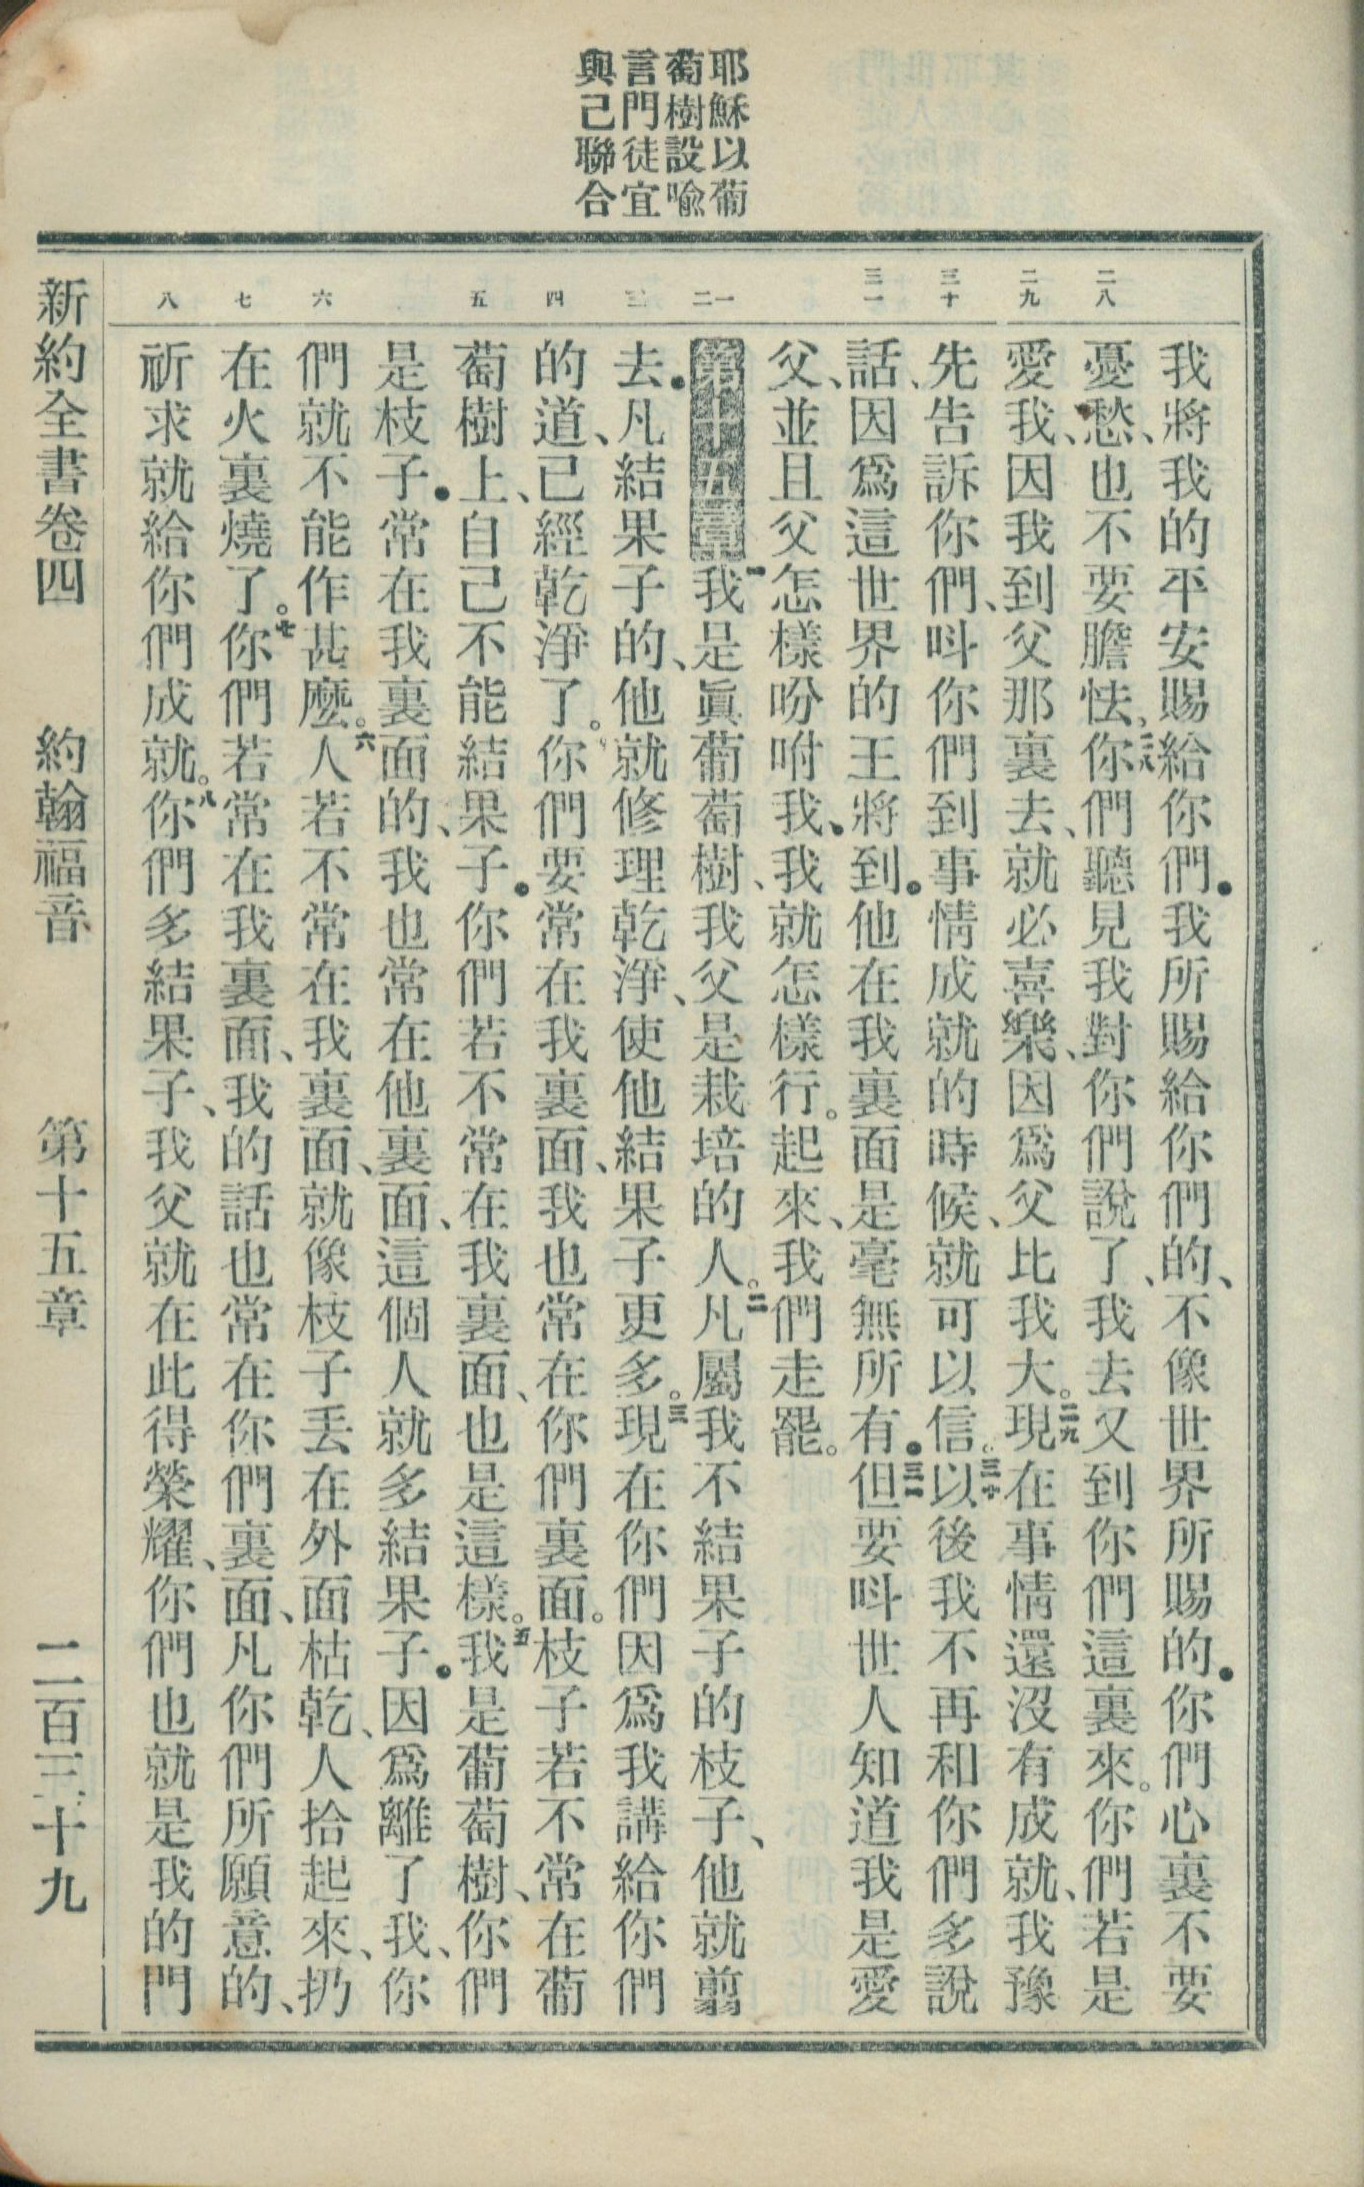 耶穌以葡
萄樹設喻
言門徒宜
與己聯合
二八
二九
三十
三一
一
二
三
四
五
六
七
八
我將我的平安賜給你們•我所賜給你們的、不像世界所賜的•你們心裏不要
憂愁、也不要膽怯。二八你們聽見我對你們說了、我去又到你們這裏來。你們若是
愛我、因我到父那裏去、就必喜樂、因爲父比我大。二九現在事情還沒有成就、我豫
先告訴你們、呌你們到事情成就的時候、就可以信。三十以後我不再和你們多說
話、因爲這世界的王將到•他在我裏面是毫無所有•三一但要呌世人知道我是愛
父、並且父怎樣吩咐我•我就怎樣行。起來、我們走罷。
第十五章一我是眞葡萄樹、我父是栽培的人。二凡屬我不結果子的枝子、他就翦
去•凡結果子的、他就修理乾淨、使他結果子更多。三現在你們因爲我講給你們
的道、已經乾淨了。你們要常在我裏面、我也常在你們裏面。枝子若不常在葡
萄樹上、自己不能結果子•你們若不常在我裏面、也是這樣。五我是葡萄樹、你們
是枝子•常在我裏面的、我也常在他裏面、這個人就多結果子•因爲離了我、你
們就不能作甚麼。六人若不常在我裏面、就像枝子丟在外面枯乾、人拾起來、扔
在火裏燒了。七你們若常在我裏面、我的話也常在你們裏面、凡你們所願意的、
祈求就給你們成就。八你們多結果子、我父就在此得榮耀、你們也就是我的門
新約全書卷四　約翰福音　第十五章　二百三十九